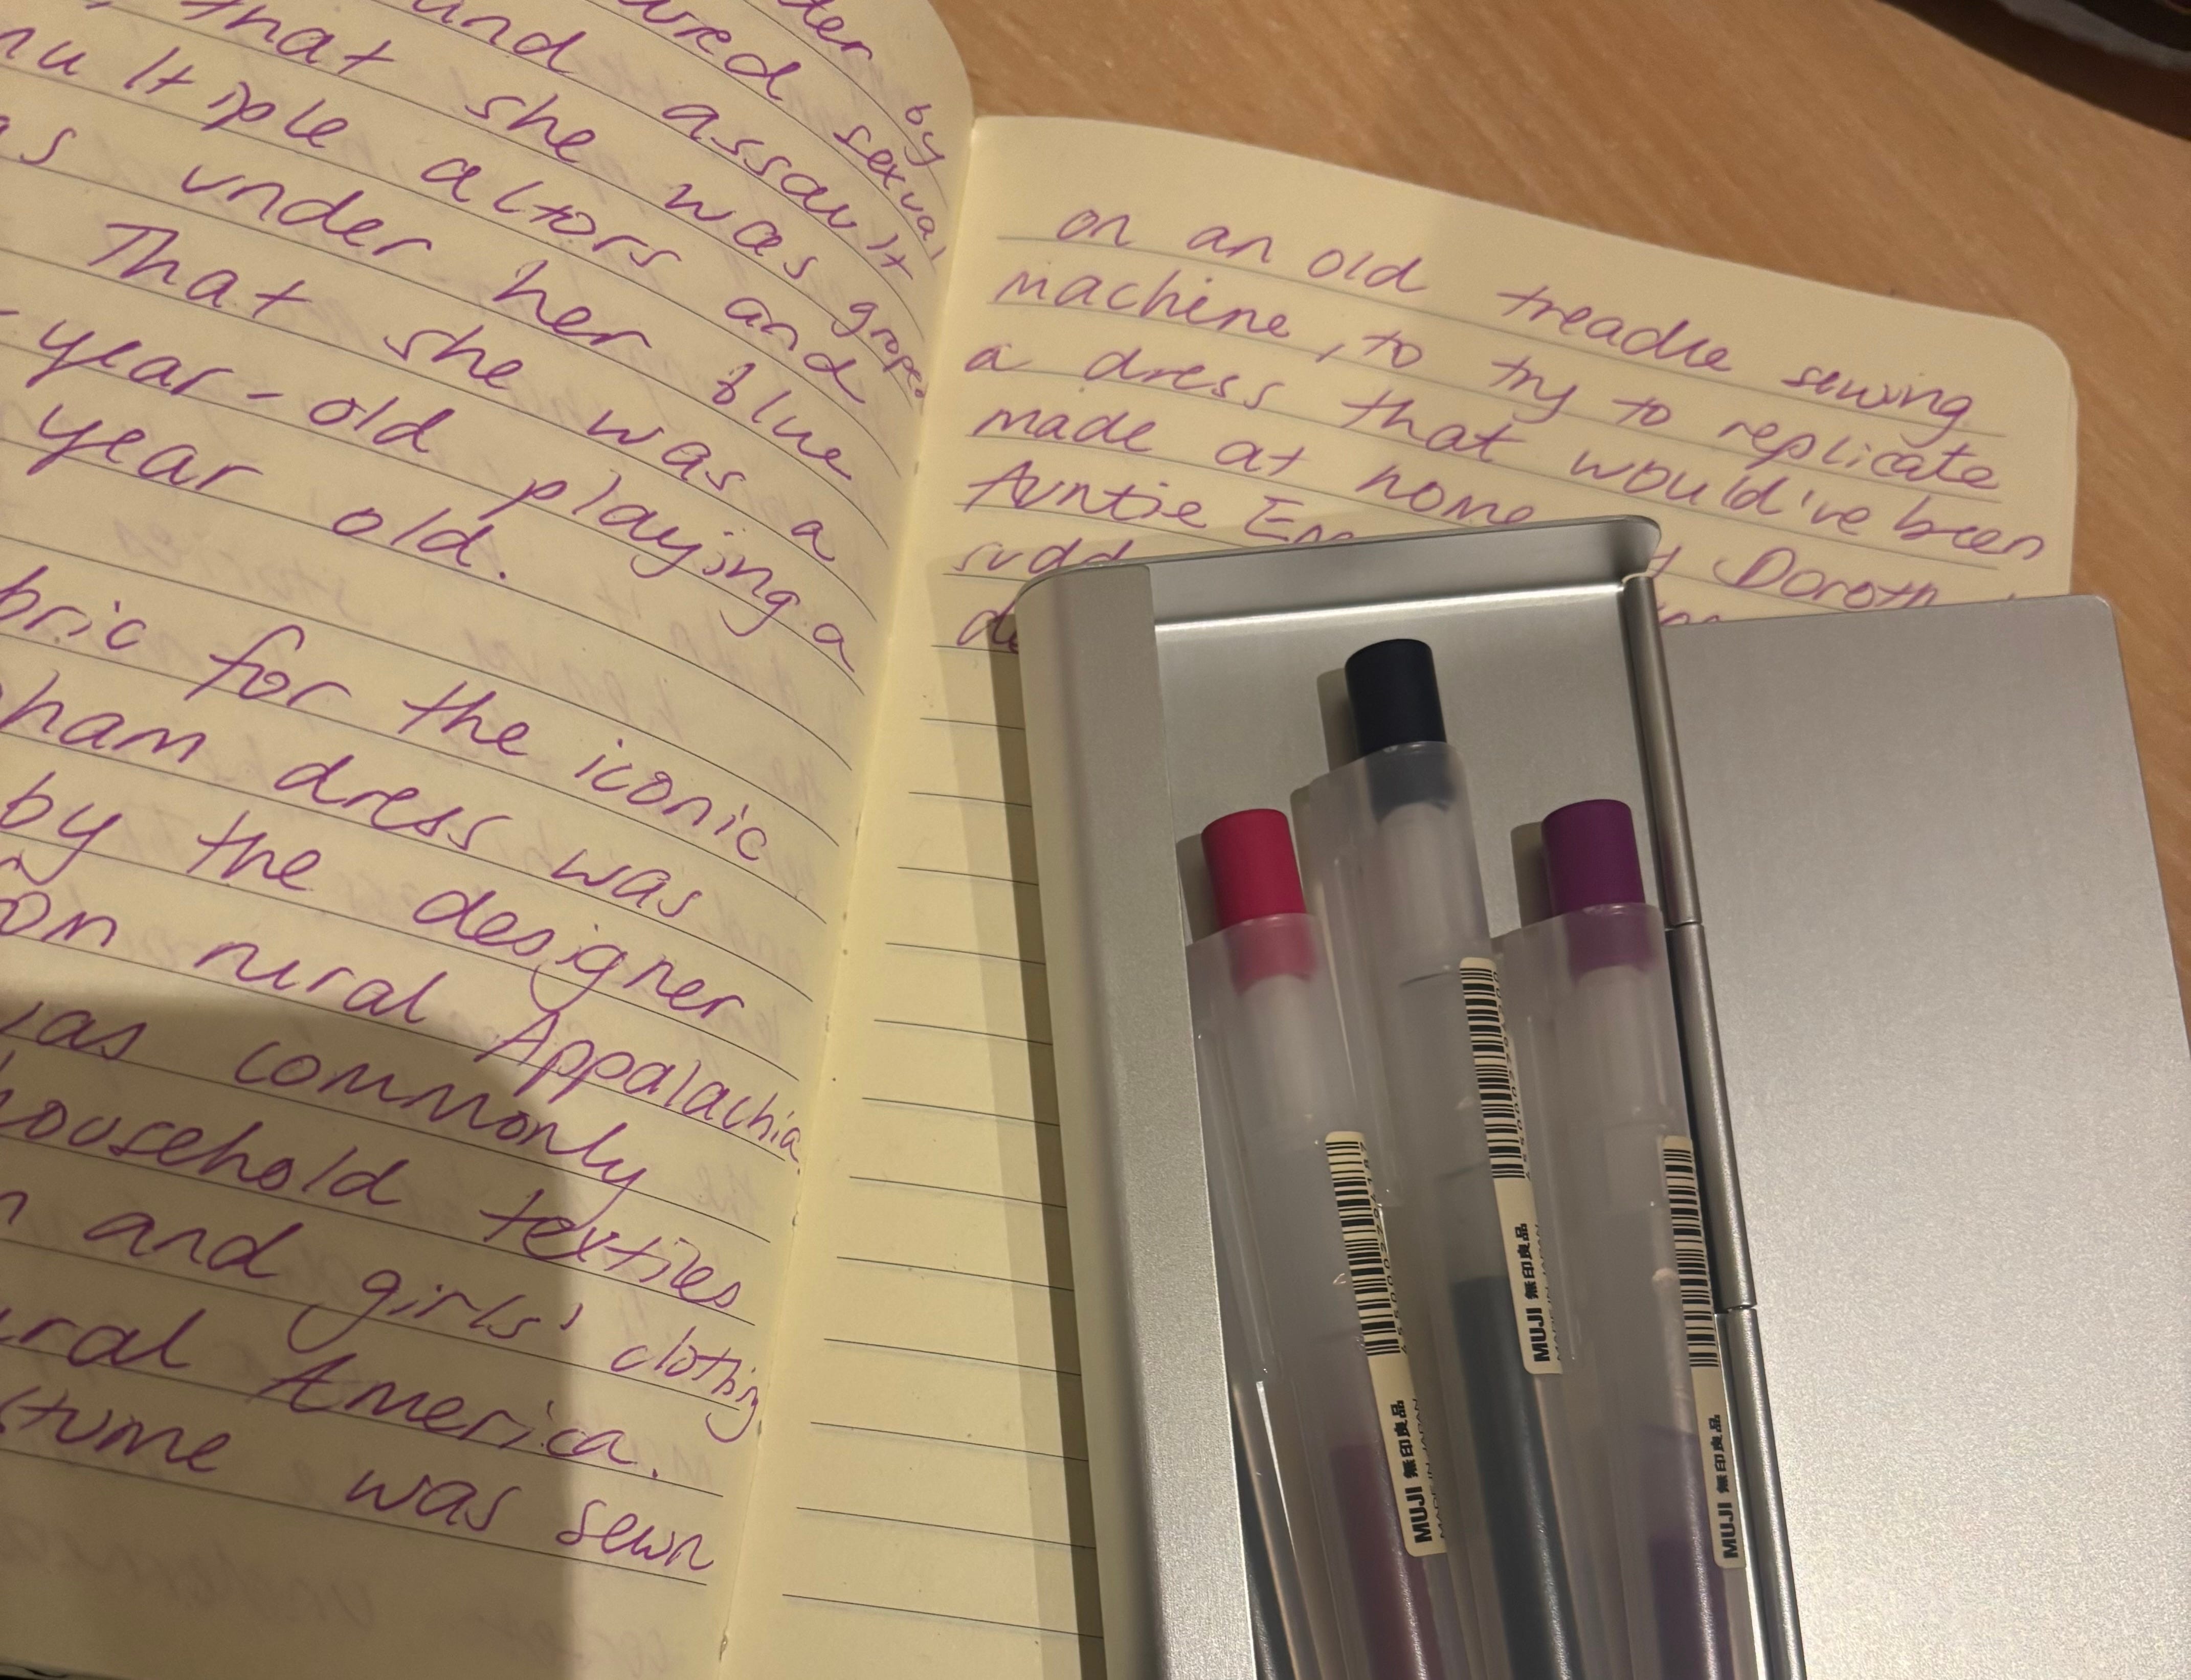 by
sexual
and assault
that she was groped
multiple actors and
under her blue
That she was a
year-old playing a
year old.
for the iconic
dress was
by the designer
rural Appalachia
commonly
household textiles
and girls' clothing
America.
was sewn
on an old treadle sewing
machine, to try to replicate
a dress that would've been
made at home
Auntie
MUJI 無印良品
MADE IN JAPAN
MUJI 無印良品
MADE IN JAPAN
MUJI 無印良品